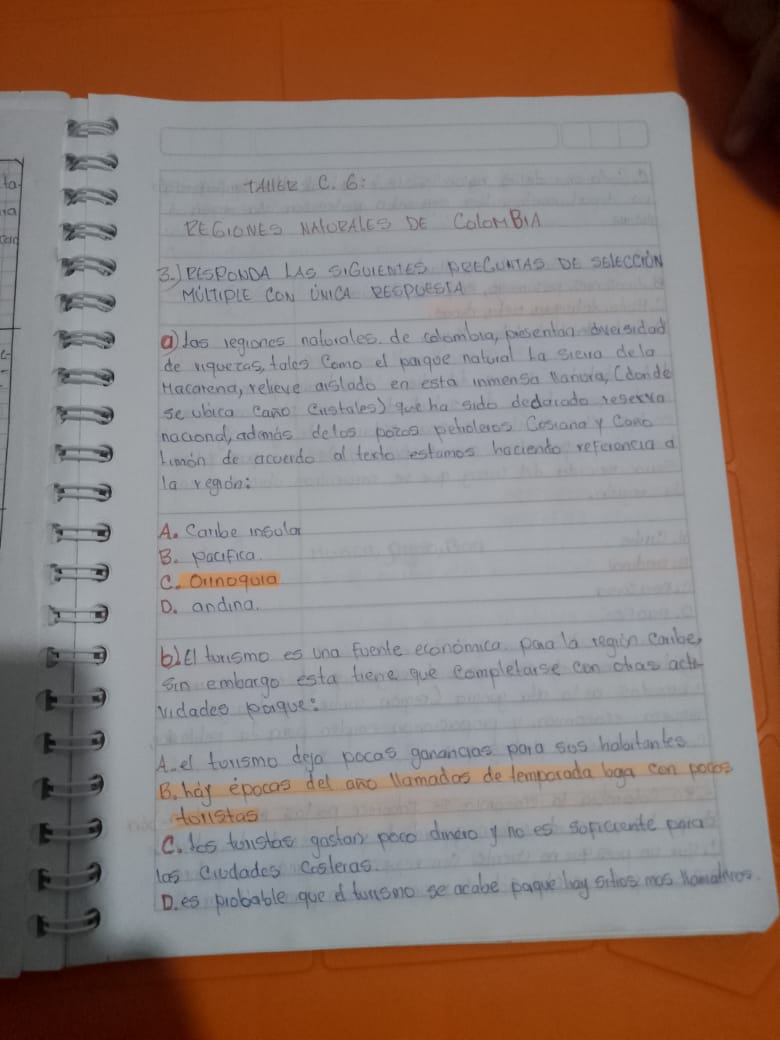 TALLER C. 6:
REGIONES NATURALES DE COLOMBIA
3.) RESPONDA LAS SIGUIENTES PREGUNTAS DE SELECCIÓN
MÚLTIPLE CON ÚNICA RESPUESTA
a) las regiones naturales de colombia, presentan diversidad
de riquezas, tales como el parque natural La sierra dela
Macarena, relieve aislado en esta inmensa llanura, (donde
se ubica Caño Cristales) que ha sido declarado reserva
nacional, además delos pozos petroleros Cusiana y Caño
Limón de acuerdo al texto estamos haciendo referencia a
la región:
A. Caribe insular
B. pacifica.
C. Orinoquia
D. andina.
b) El turismo es una fuente económica para la región caribe,
sin embargo esta tiene que completarse con otras acti-
vidades porque:
A. el turismo deja pocas ganancias para sus habitantes
B. háy épocas del año llamados de temporada baja con pocos
turistas
C. los turistas gastan poco dinero y no es suficiente para
las ciudades costeras.
D. es probable que el turismo se acabe porque hay sitios mas llamativos.
ta
ra